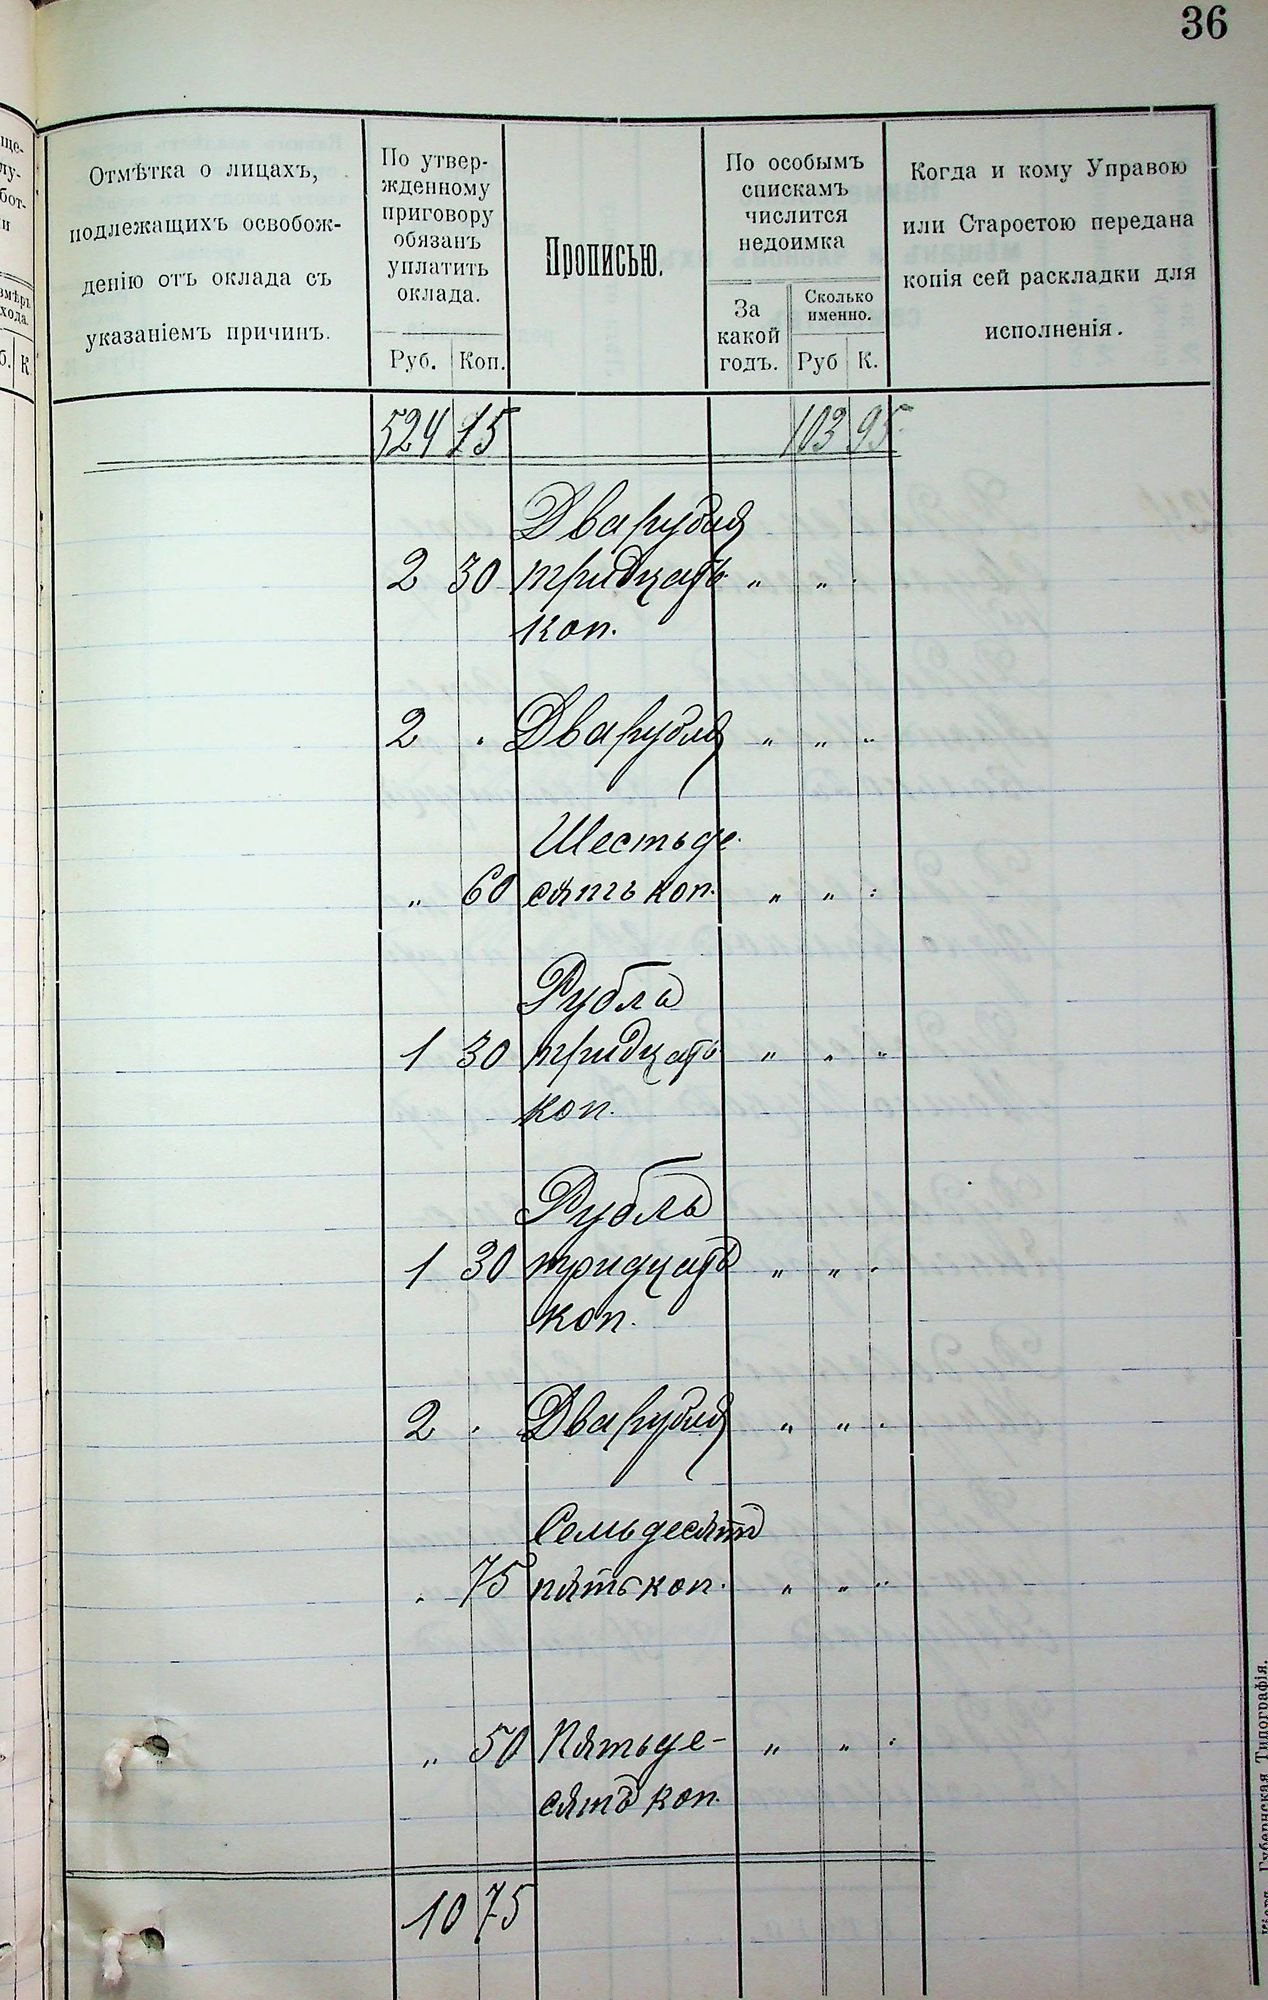 36
Отмѣтка о лицахъ,
подлежащихъ освобож-
денію отъ оклада съ
указаніемъ причинъ.
По утвер-
жденному
приговору
обязанъ
уплатить
оклада.
Руб. Коп.
Прописью.
По особымъ
спискамъ
числится
недоимка
За
какой
годъ.
Сколько
именно.
Руб К.
Когда и кому Управою
или Старостою передана
копія сей раскладки для
исполненія.
524 15 103 95
Два рубля
2 30 тридцать " "
коп.
2 Два рубля " " "
Шестьде-
" 60 сятъ коп. " " "
Рубль
1 30 тридцать " " "
коп.
Рубль
1 30 тридцать " " "
коп.
2 Два рубля " " "
Семьдесятъ
75 пять коп. " " "
" 50 Пятьде- " "
сятъ коп.
10 75
Губернская Типографія.